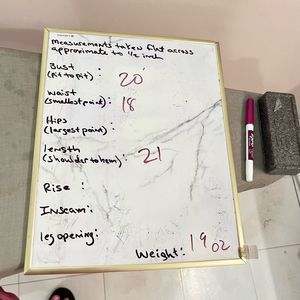 measurements taken flat across
approximate to ½ inch
Bust :
(pit to pit) 20
waist :
(smallest point) 18
Hips :
(largest point)
length :
(shoulder to hem) 21
Rise :
Inseam :
leg opening:
Weight: 19 oz
EXPO